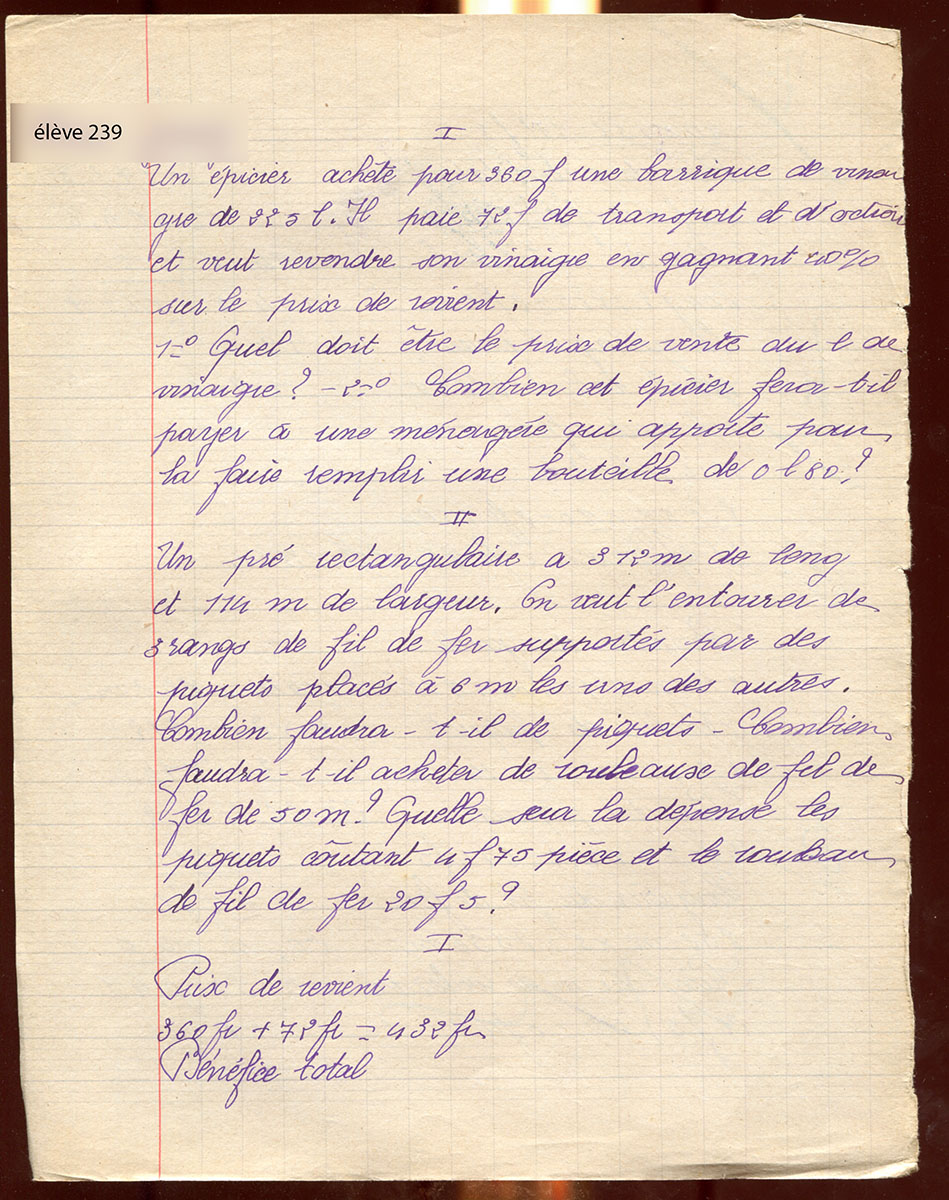 élève 239
I
Un épicier achète pour 360 f une barrique de vinai
gre de 225 l. Il paie 72 f de transport et d'octroi
et veut revendre son vinaigre en gagnant 20%
sur le prix de revient.
1º Quel doit être le prix de vente du l de
vinaigre ? - 2º Combien cet épicier fera-t-il
payer à une ménagère qui apporte pour
la faire remplir une bouteille de 0 l 80 ?
II
Un pré rectangulaire a 312 m de long
et 114 m de largeur. On veut l'entourer de
3 rangs de fil de fer supportés par des
piquets placés à 6 m les uns des autres.
Combien faudra-t-il de piquets - Combien
faudra-t-il acheter de rouleause de fil de
fer de 50 m ? Quelle sera la dépense les
piquets coûtant 4 f 75 pièce et le rouleau
de fil de fer 20 f 5 ?
I
Prix de revient
360 fr + 72 fr = 432 fr
Bénéfice total